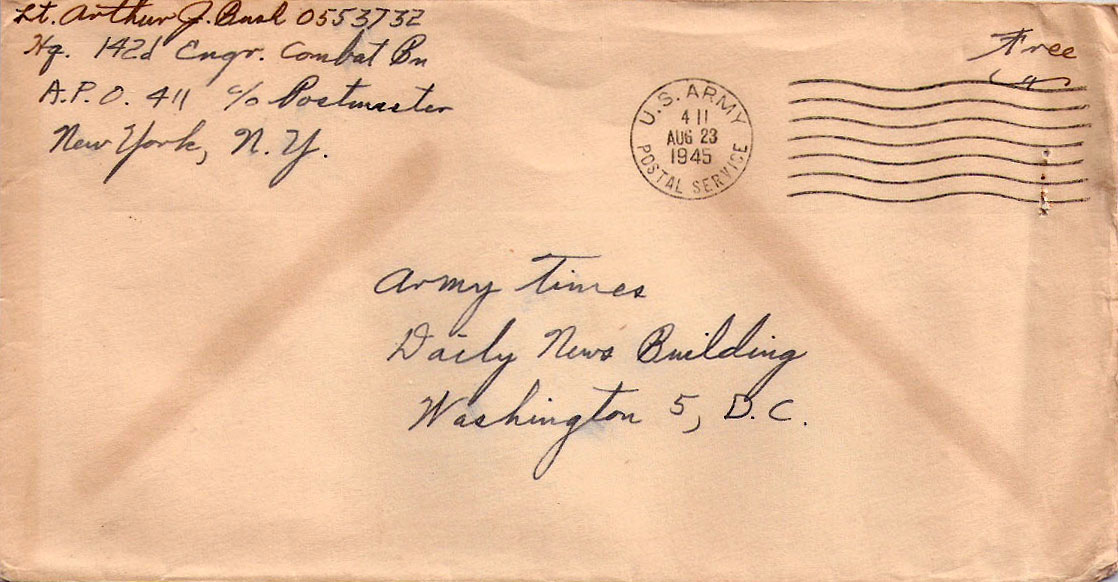 Lt. Arthur J. Bush 0553732
Hq. 142d Engr. Combat Bn
A.P.O. 411 c/o Postmaster
New York, N.Y.
Free
U.S. ARMY
411
AUG 23
1945
POSTAL SERVICE
Army Times
Daily News Building
Washington 5, D.C.